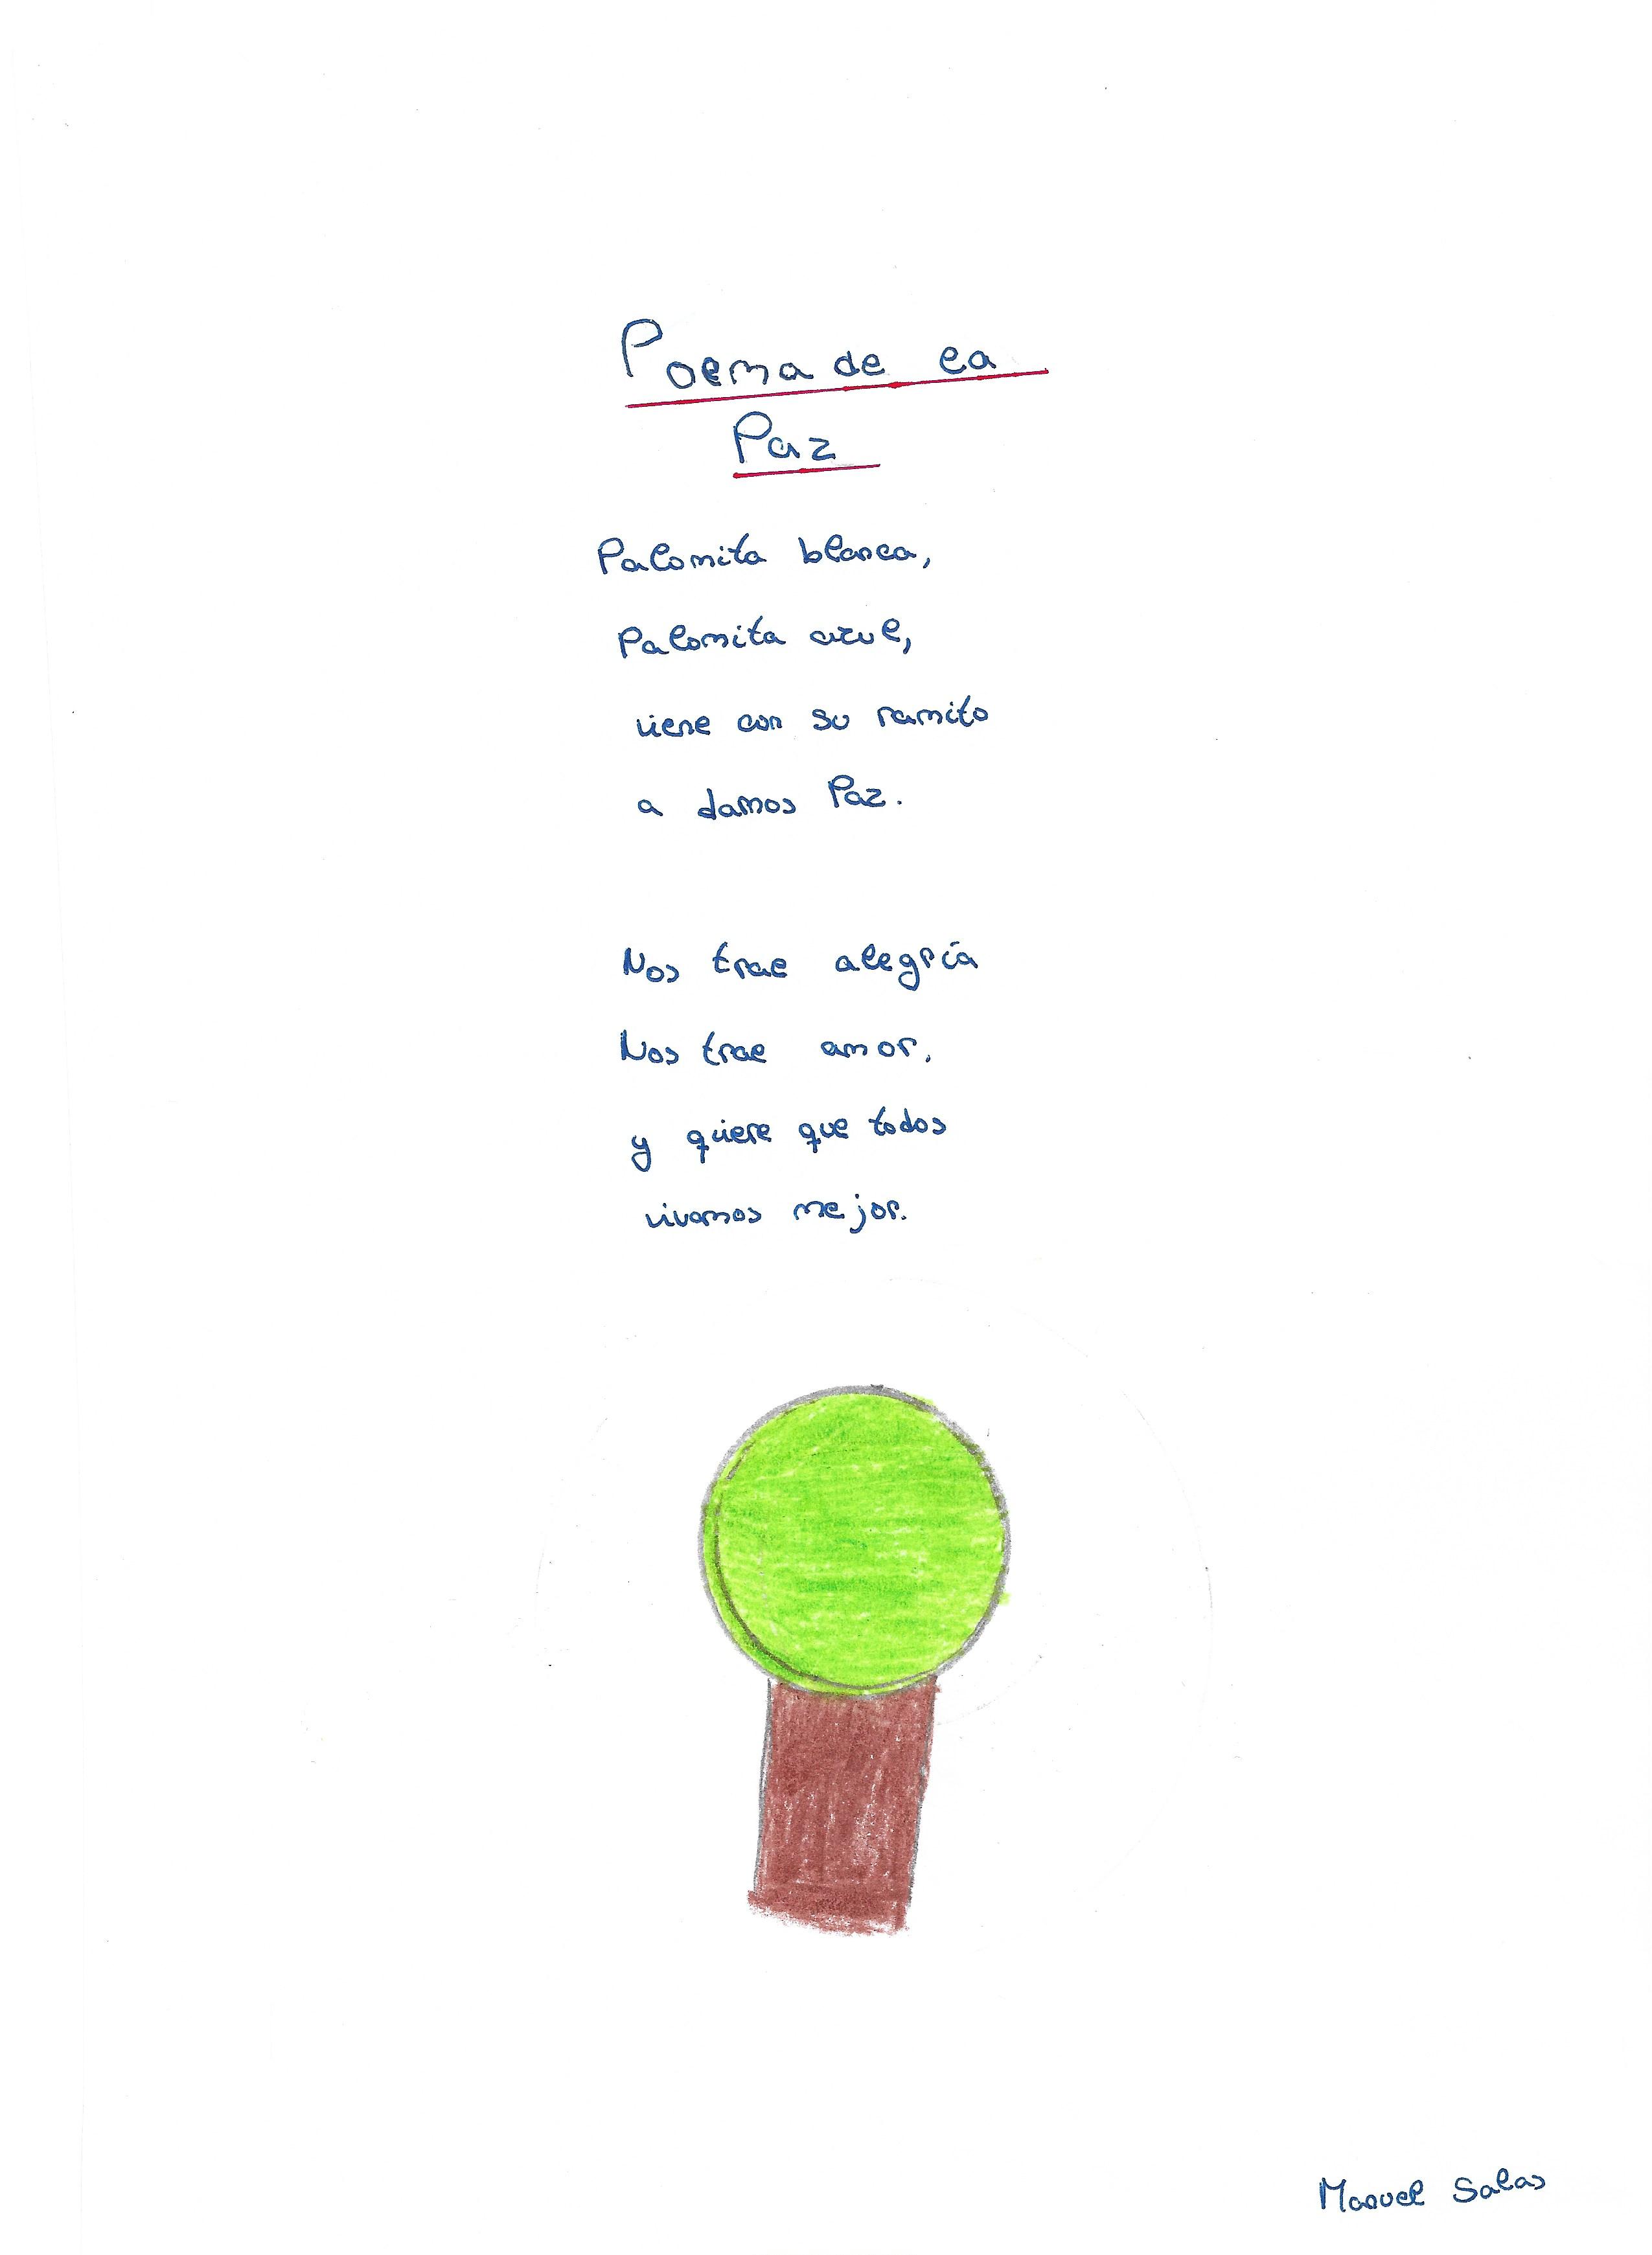 Poema de la
Paz
Palomita blanca,
Palomita azul,
viene con su ramito
a darnos Paz.
Nos trae alegría
Nos trae amor,
y quiere que todos
vivamos mejor.
Manuel Salas